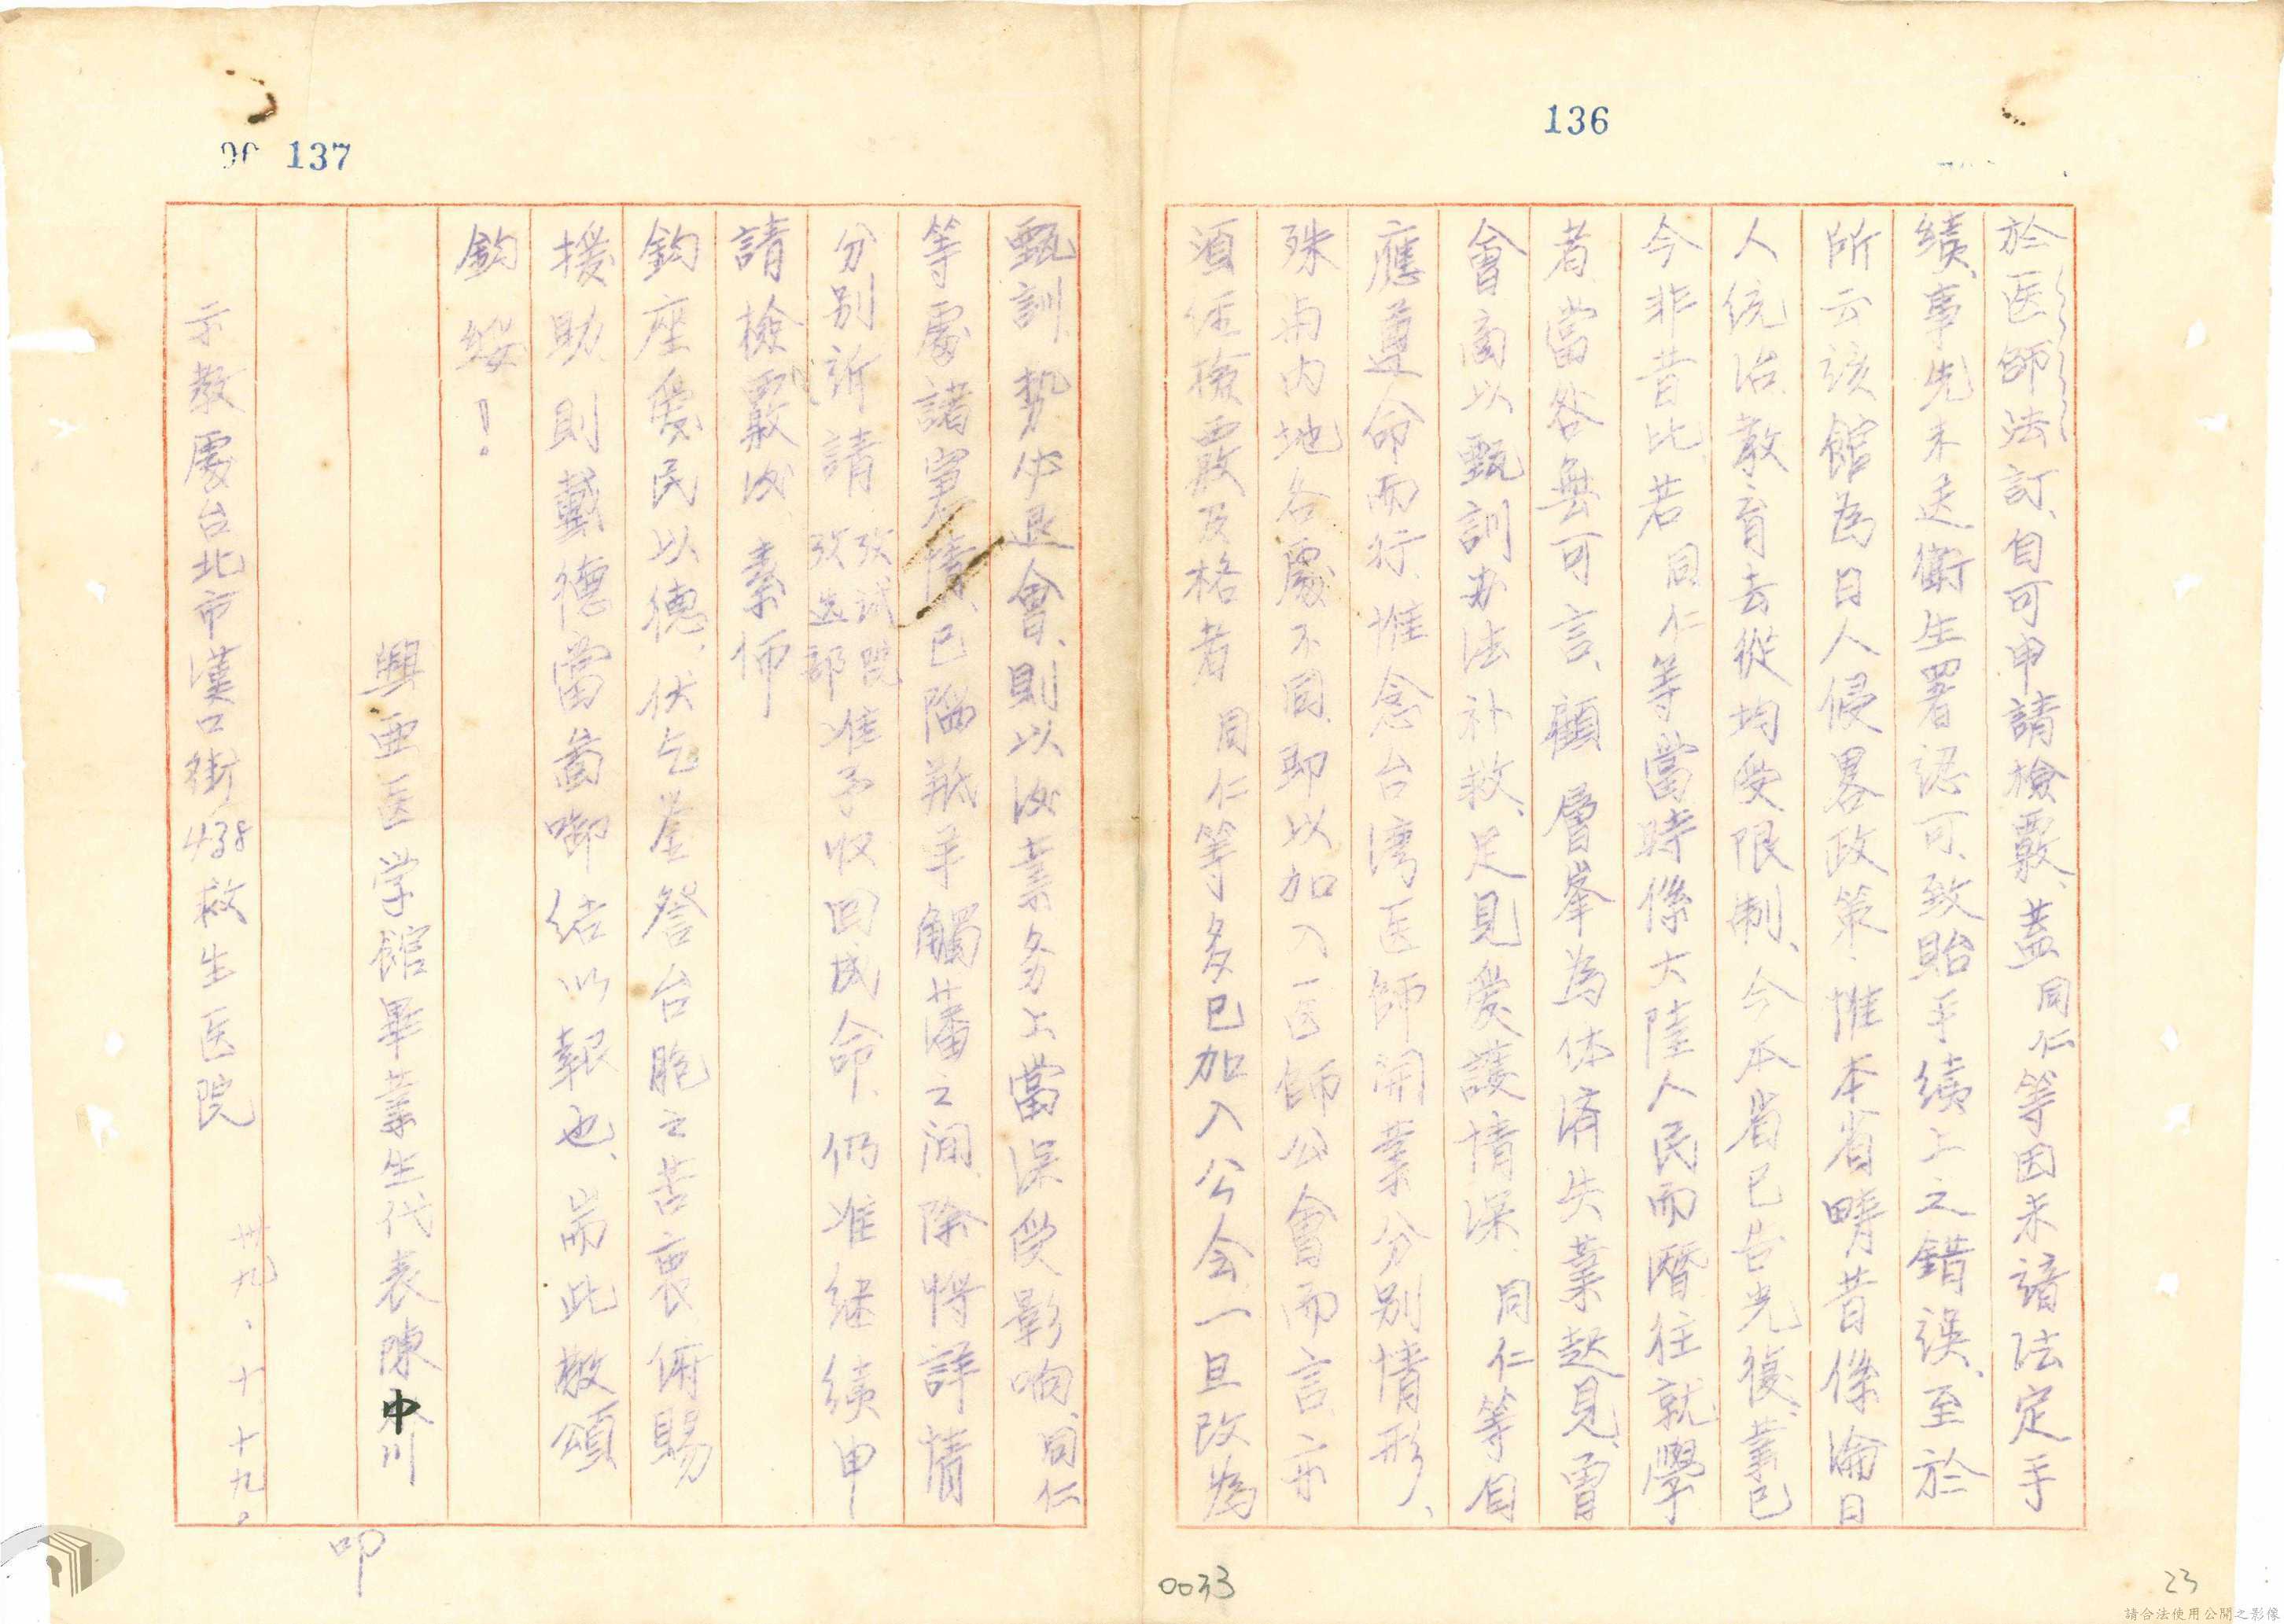 136
於医師法訂、自可申請檢覈、蓋同仁等因未諳法定手
續、事先未送衛生署認可、致貽手續上之錯誤、至於
所云該館為日人侵畧政策、惟本省疇昔係淪日
人統治、教育去從均受限制、今本省已告光復、業已
今非昔比、若同仁等當時係大陸人民而厝往就學
者、當咎無可言、顧層峯為体濟失業起見、曾
會商以甄訓办法补救、足見愛護情深、同仁等自
應遵命而行、惟念台湾医師開業分別情形、
殊与内地各處不同、即以加入医師公會而言、亦
須經檢覈及格者同仁等多已加入公会一旦改為
0033
23
137
甄訓、勢必退會、則以後業务上當深受影响、同仁
等處諸窘情、已陷羝羊觸藩之間、除將詳情
分别訴請考試院考选部准予収回成命、仍准继续申
請檢覈後、素仰
鈞座愛民以德、伏乞鉴詧台胞之苦衷俯賜
援助、則戴德當啣结以報也、耑此敬頌
鈞綏！
興亜医学館畢業生代表陳中川
叩
示教處台北市漢口街438救生医院
卅九、十、十九。
請合法使用公開之影像